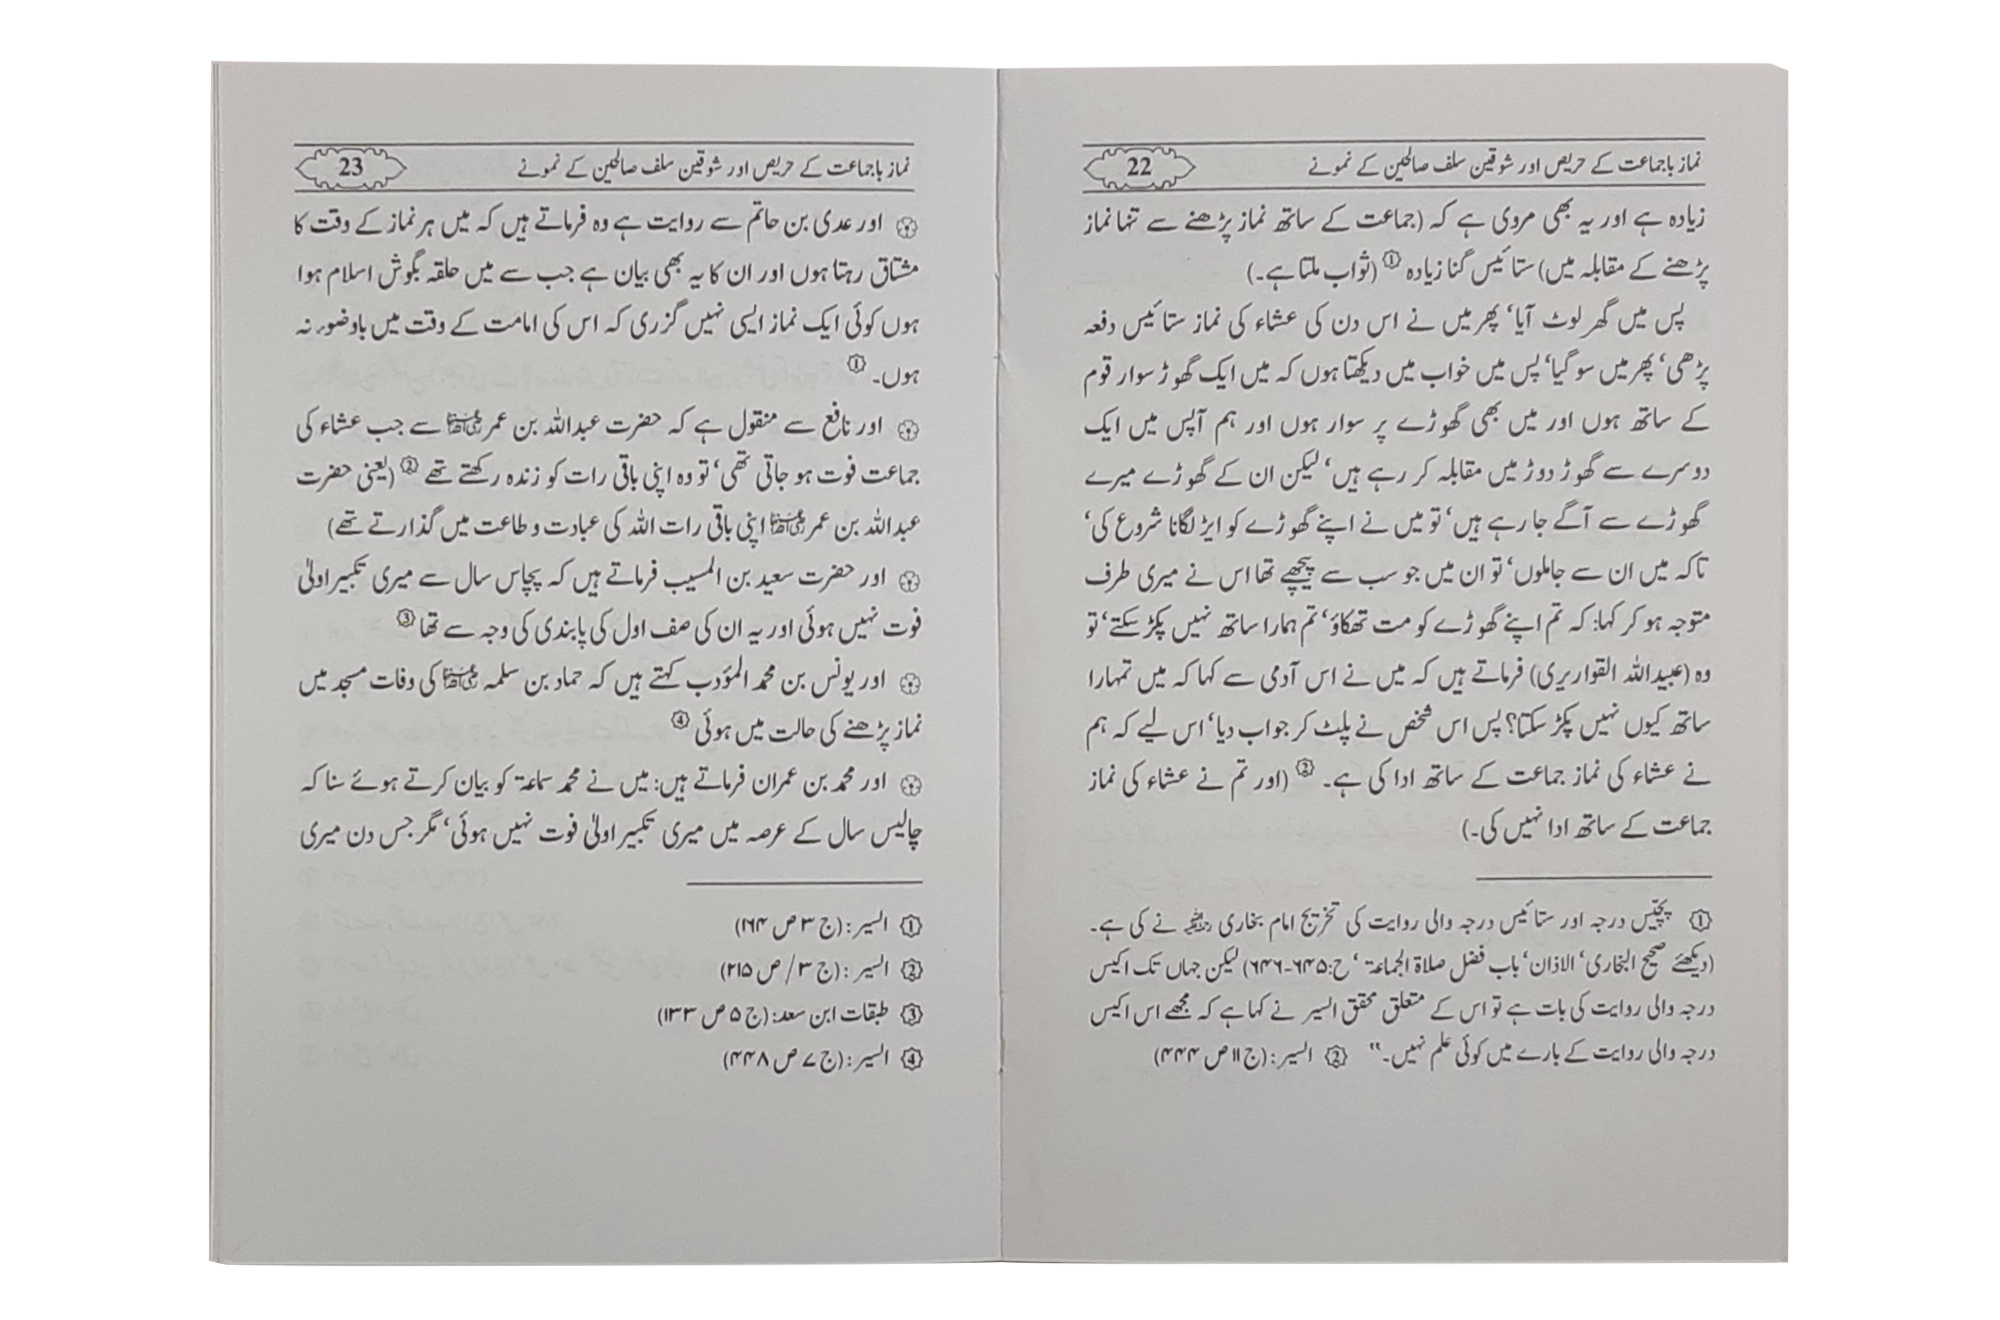 نماز باجماعت کے حریص اور شوقین سلف صالحین کے نمونے 22
زیادہ ہے اور یہ بھی مروی ہے کہ (جماعت کے ساتھ نماز پڑھنے سے تنہا نماز
پڑھنے کے مقابلہ میں) ستائیس گنا زیادہ ① (ثواب ملتا ہے۔)
پس میں گھر لوٹ آیا، پھر میں نے اس دن کی عشاء کی نماز ستائیس دفعہ
پڑھی، پھر میں سو گیا، پس میں خواب میں دیکھتا ہوں کہ میں ایک گھوڑ سوار قوم
کے ساتھ ہوں اور میں بھی گھوڑے پر سوار ہوں اور ہم آپس میں ایک
دوسرے سے گھوڑ دوڑ میں مقابلہ کر رہے ہیں، لیکن ان کے گھوڑے میرے
گھوڑے سے آگے جا رہے ہیں، تو میں نے اپنے گھوڑے کو ایڑ لگانا شروع کی،
تاکہ میں ان سے جاملوں، تو ان میں جو سب سے پیچھے تھا اس نے میری طرف
متوجہ ہو کر کہا: کہ تم اپنے گھوڑے کو مت تھکاؤ، تم ہمارا ساتھ نہیں پکڑ سکتے، تو
وہ (عبیداللہ القواریری) فرماتے ہیں کہ میں نے اس آدمی سے کہا کہ میں تمہارا
ساتھ کیوں نہیں پکڑ سکتا؟ پس اس شخص نے پلٹ کر جواب دیا، اس لیے کہ ہم
نے عشاء کی نماز جماعت کے ساتھ ادا کی ہے۔ ② (اور تم نے عشاء کی نماز
جماعت کے ساتھ ادا نہیں کی۔)
① پچّیس درجہ اور ستائیس درجہ والی روایت کی تخریج امام بخاری رحمہ اللہ نے کی ہے۔
(دیکھئے صحیح البخاری، الاذان، باب فضل صلاۃ الجماعۃ ، ح:۶۴۵-۶۴۶) لیکن جہاں تک اکیس
درجہ والی روایت کی بات ہے تو اس کے متعلق محقق السیر نے کہا ہے کہ مجھے اس اکیس
درجہ والی روایت کے بارے میں کوئی علم نہیں۔“ ② السیر: (ج ۱۱ ص ۴۴۴)
نماز باجماعت کے حریص اور شوقین سلف صالحین کے نمونے 23
اور عدی بن حاتم سے روایت ہے وہ فرماتے ہیں کہ میں ہر نماز کے وقت کا
مشتاق رہتا ہوں اور ان کا یہ بھی بیان ہے جب سے میں حلقہ بگوش اسلام ہوا
ہوں کوئی ایک نماز ایسی نہیں گزری کہ اس کی امامت کے وقت میں باوضوء نہ
ہوں۔ ①
اور نافع سے منقول ہے کہ حضرت عبداللہ بن عمر رضی اللہ عنہما سے جب عشاء کی
جماعت فوت ہو جاتی تھی، تو وہ اپنی باقی رات کو زندہ رکھتے تھے ② (یعنی حضرت
عبداللہ بن عمر رضی اللہ عنہما اپنی باقی رات اللہ کی عبادت و طاعت میں گذارتے تھے)
اور حضرت سعید بن المسیب فرماتے ہیں کہ پچاس سال سے میری تکبیر اولیٰ
فوت نہیں ہوئی اور یہ ان کی صف اول کی پابندی کی وجہ سے تھا ③
اور یونس بن محمد المؤدب کہتے ہیں کہ حماد بن سلمہ رضی اللہ عنہما کی وفات مسجد میں
نماز پڑھنے کی حالت میں ہوئی ④
اور محمد بن عمران فرماتے ہیں: میں نے محمد سماعۃ کو بیان کرتے ہوئے سنا کہ
چالیس سال کے عرصہ میں میری تکبیر اولیٰ فوت نہیں ہوئی، مگر جس دن میری
① السیر: (ج ۳ ص ۱۶۴)
② السیر: (ج ۳/ ص ۲۱۵)
③ طبقات ابن سعد: (ج ۵ ص ۱۳۳)
④ السیر: (ج ۷ ص ۴۴۸)